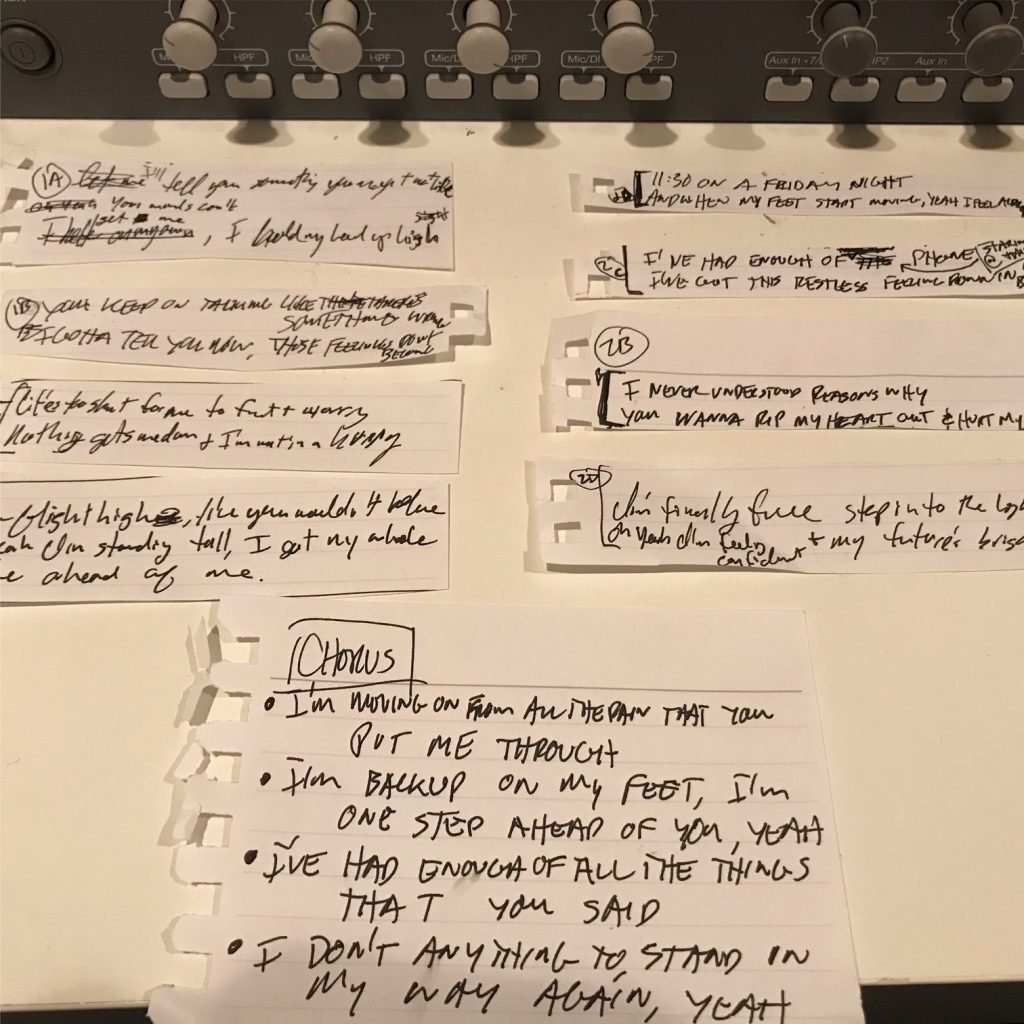 Mic/ HPF Mic/DI HPF Mic/DI HPF Mic/DI HPF Aux In 7/ HP2 Aux In
1A I'll tell you something you
Your words can't
get me
, I hold my head up high
1B YOU KEEP ON TALKING LIKE THERE'S
SOMETHING WRONG
I GOTTA TELL YOU NOW, THOSE FEELINGS DON'T
BELONG
life's too short for me to fret & worry
Nothing gets me down & I'm not in a hurry
flight high, like you wouldn't believe
I'm standing tall, I got my whole
ahead of me.
11:30 ON A FRIDAY NIGHT
AND WHEN MY FEET START MOVING, YEAH I FEEL
2C I'VE HAD ENOUGH OF PHONE
I'VE GOT THIS RESTLESS FEELING DOWN IN
2B
I NEVER UNDERSTOOD REASONS WHY
YOU WANNA RIP MY HEART OUT & HURT MY
2D I'm finally free step into the
Oh yeah I'm feeling & my future's
confident
CHORUS
• I'M MOVING ON FROM ALL THE PAIN THAT YOU
PUT ME THROUGH
• I'm BACK UP ON MY FEET, I'm
ONE STEP AHEAD OF YOU, YEAH
• I'VE HAD ENOUGH OF ALL THE THINGS
THAT YOU SAID
• I DON'T ANYTHING TO STAND IN
MY WAY AGAIN, YEAH